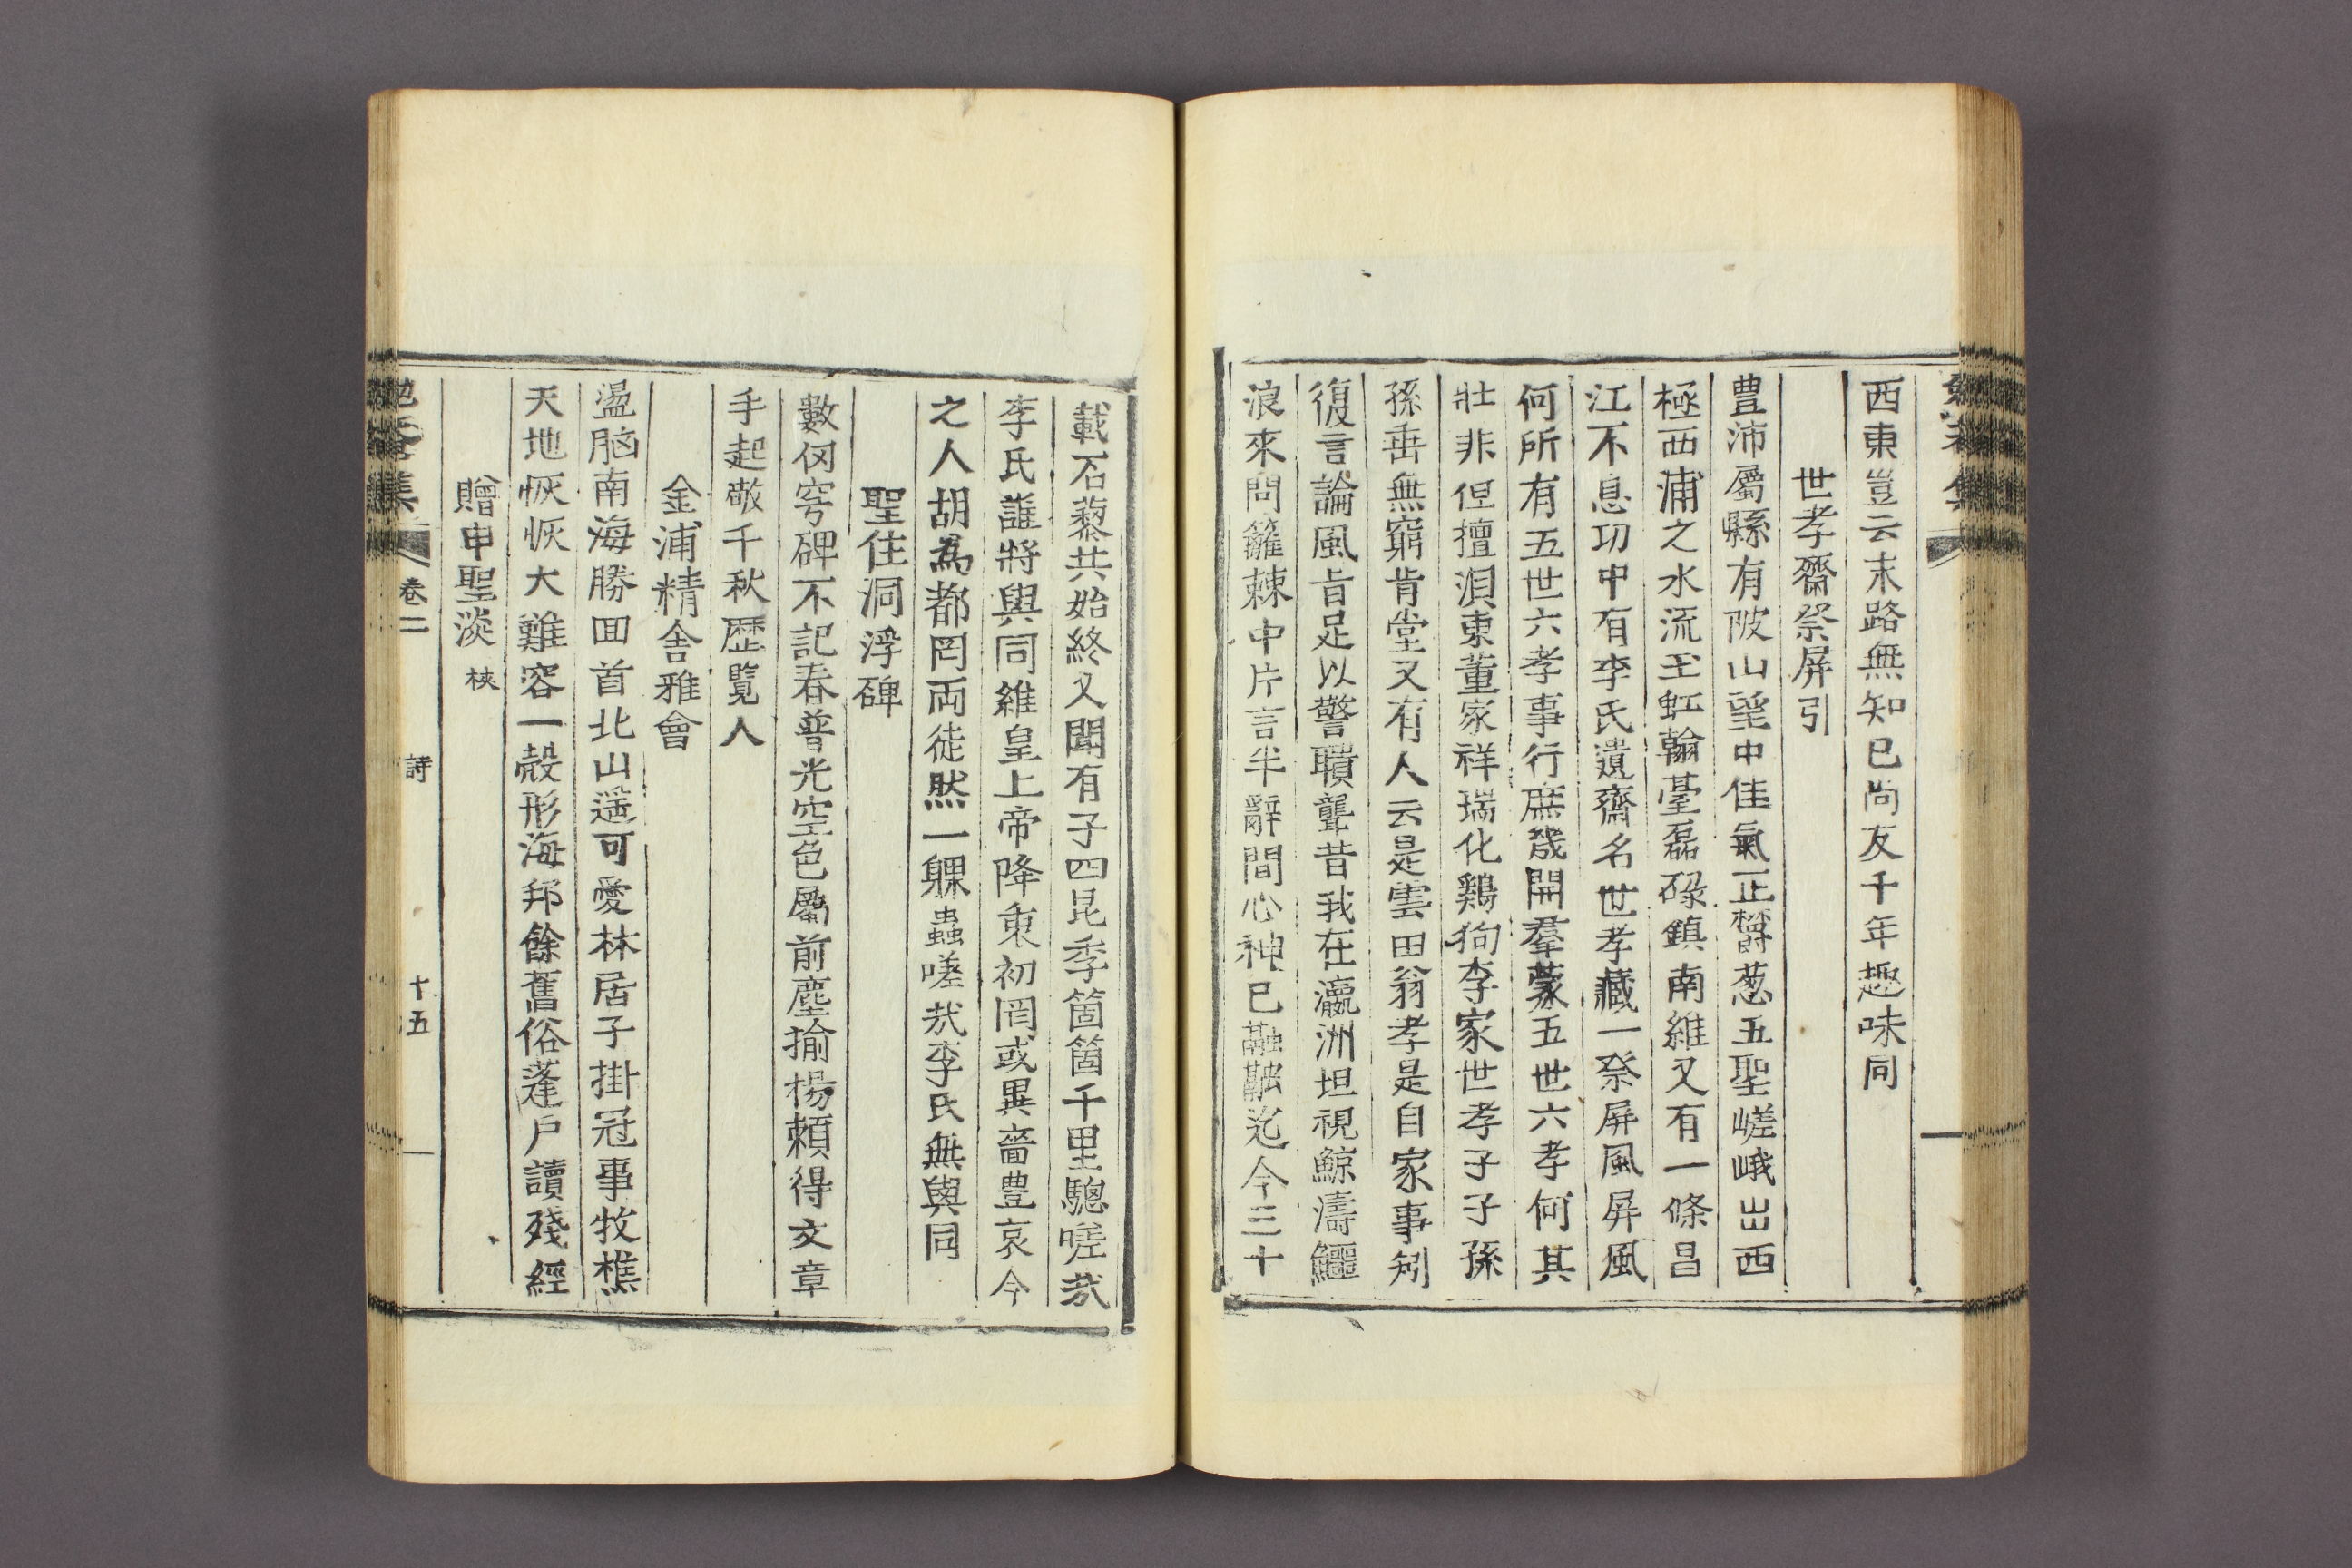 西東豈云末路無知已尚友千年趣味同
世孝齋祭屏引
豊沛屬縣有陂山望中佳氣正欝葱五聖嵯峨出西
極西浦之水流玉虹翰臺磊磲鎮南維又有一條昌
江不息功中有李氏遺齋名世孝藏一祭屏風屏風
何所有五世六孝事行庶幾開羣蒙五世六孝何其
壯非但擅湏東董家祥瑞化鷄狗李家世孝子子孫
孫垂無窮肯堂又有人云是雲田翁孝是自家事矧
復言論風旨足以警聵聾昔我在瀛洲坦視鯨濤鱷
浪來問籬棘中片言半辭間心神已融融迄今三十
載石藜共始終又聞有子四昆季箇箇千里驄嗟哉
李氏誰將與同維皇上帝降衷初罔或異嗇豊哀今
之人胡為都罔両徒然一躶蟲嗟哉李氏無與同
聖住洞浮碑
數仞穹碑不記春普光空色屬前塵揄楊賴得文章
手起敬千秋歴覽人
金浦精舍雅會
盪胸南海勝回首北山遥可愛林居子掛冠事牧樵
天地恢恢大難容一殼形海邦餘舊俗蓬戶讀殘經
贈申聖淡 棙
卷二 詩 十五